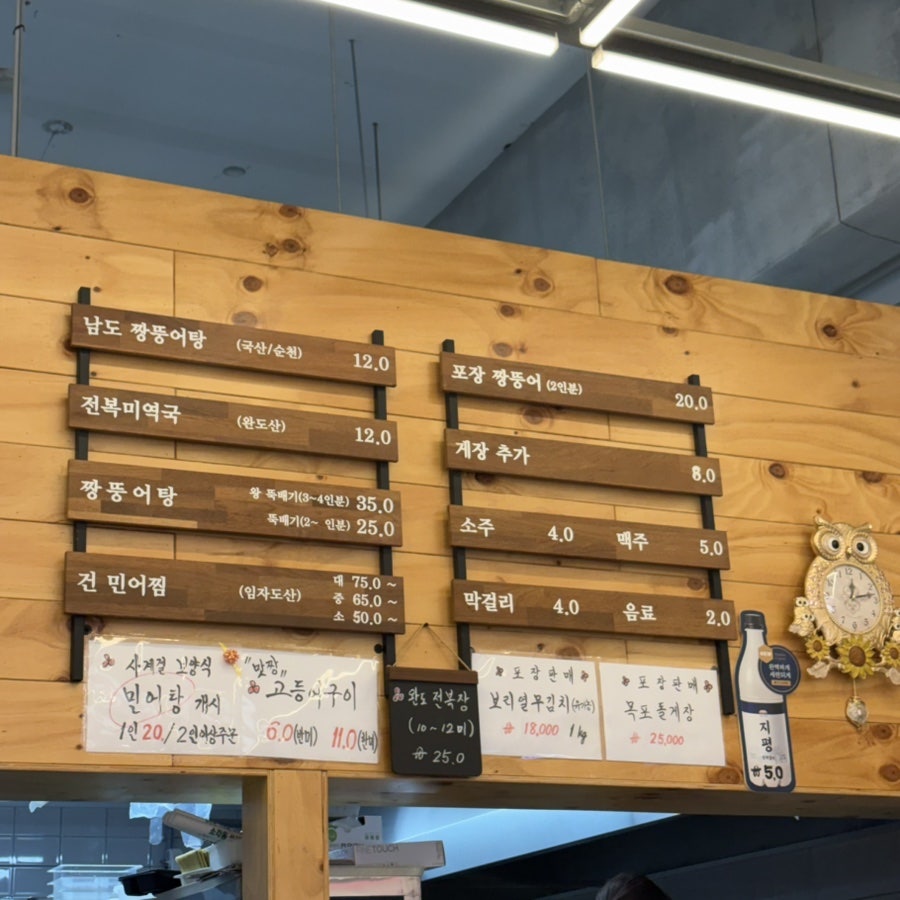 남도 짱뚱어탕 (국산/순천) 12.0
전복미역국 (완도산) 12.0
짱뚱어탕 왕 뚝배기(3~4인분) 35.0
뚝배기(2~ 인분) 25.0
건 민어찜 (임자도산) 대 75.0 ~
중 65.0 ~
소 50.0 ~
포장 짱뚱어 (2인분) 20.0
게장 추가 8.0
소주 4.0 맥주 5.0
막걸리 4.0 음료 2.0
사계절 보양식
민어탕 개시
1인 20./2인이상주문
"맞짱"
고등어구이
6.0(반미) 11.0(한미)
완도 전복장
(10~12미)
₩ 25.0
포장판매
보리열무김치
₩ 18,000 1kg
포장판매
목포돌게장
₩ 25,000
지평
₩5.0